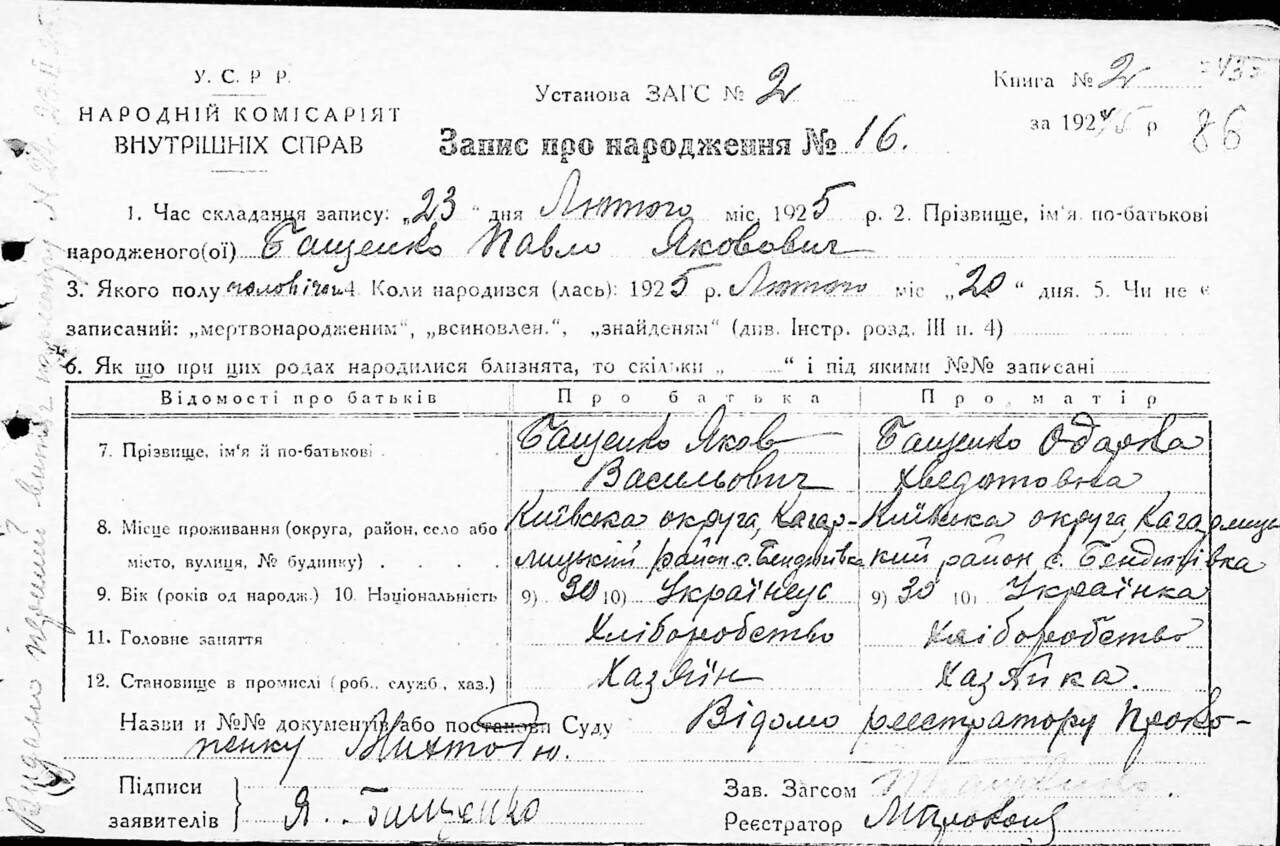 У. С. Р Р.
НАРОДНІЙ КОМІСАРІЯТ
ВНУТРІШНІХ СПРАВ
Установа ЗАГС № 2
Книга № 2
за 1924/5 р
86
Запис про народження № 16.
1. Час складання запису: „23 " дня Лютого міс, 1925 р. 2. Прізвище, ім'я по-батькові
народженого(ої) Бащенко Павло Яковович
3. Якого полу чоловічоі 4. Коли народився (лась): 1925 р. Лютого міс „20 " дня. 5. Чи не є
записаний: „мертвонародженим", „всиновлен.", „знайденям" (див. Інстр. розд. III п. 4)
6. Як що при цих родах народилися близнята, то скільки „ " і під якими №№ записані
Відомості про батьків Про батька Про матір
7. Прізвище, ім'я й по-батькові Бащенко Яков Васильович Бащенко Одарка Хведотовна
8. Місце проживання (округа, район, село або Київська округа, Кагар- Київська округа, Кагарлиць-
місто, вулиця, № будинку) лицький район с. Бендюгівка кий район с. Бендюгівка
9. Вік (років од народж.) 10. Національність 9) 30 10) Українець 9) 30 10) Українка
11. Головне заняття Хліборобство Хліборобство
12. Становище в промислі (роб., служб, хаз.) Хазяїн Хазяйка.
Назви и №№ документів або постанови Суду Відомо реєстратору Проко-
пенку
Підписи
заявителів Я. Бащенко
Зав. Загсом
Реєстратор
Видано перший витяг